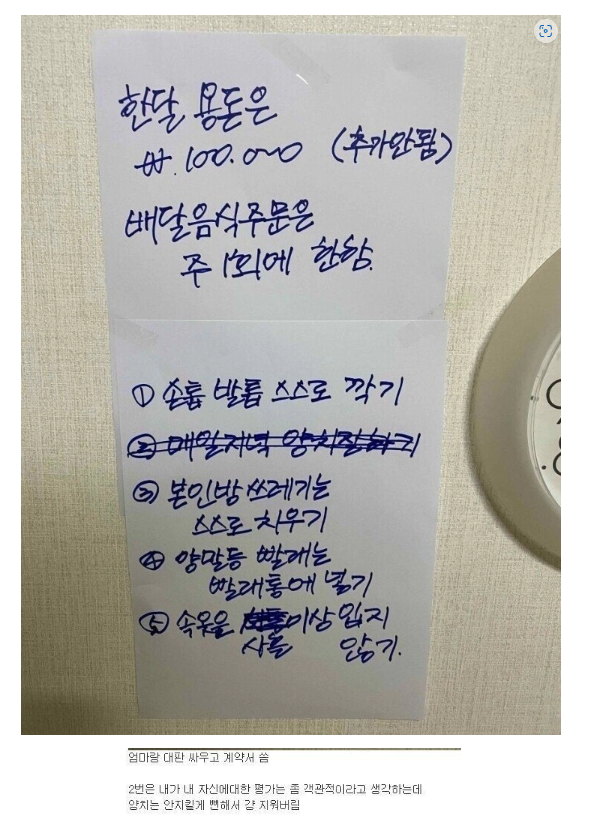 한달 용돈은
₩.100.000 (추가안됨)
배달음식주문은
주 1회에 한함.
① 손톱 발톱 스스로 깍기
② 매일저녁 양치질하기
③ 본인방 쓰레기는
스스로 치우기
④ 양말등 빨래는
빨래통에 넣기
⑤ 속옷을 이상 입지
사흘 않기.
엄마랑 대판 싸우고 계약서 씀
2번은 내가 내 자신에대한 평가는 좀 객관적이라고 생각하는데
양치는 안지킬게 뻔해서 걍 지워버림